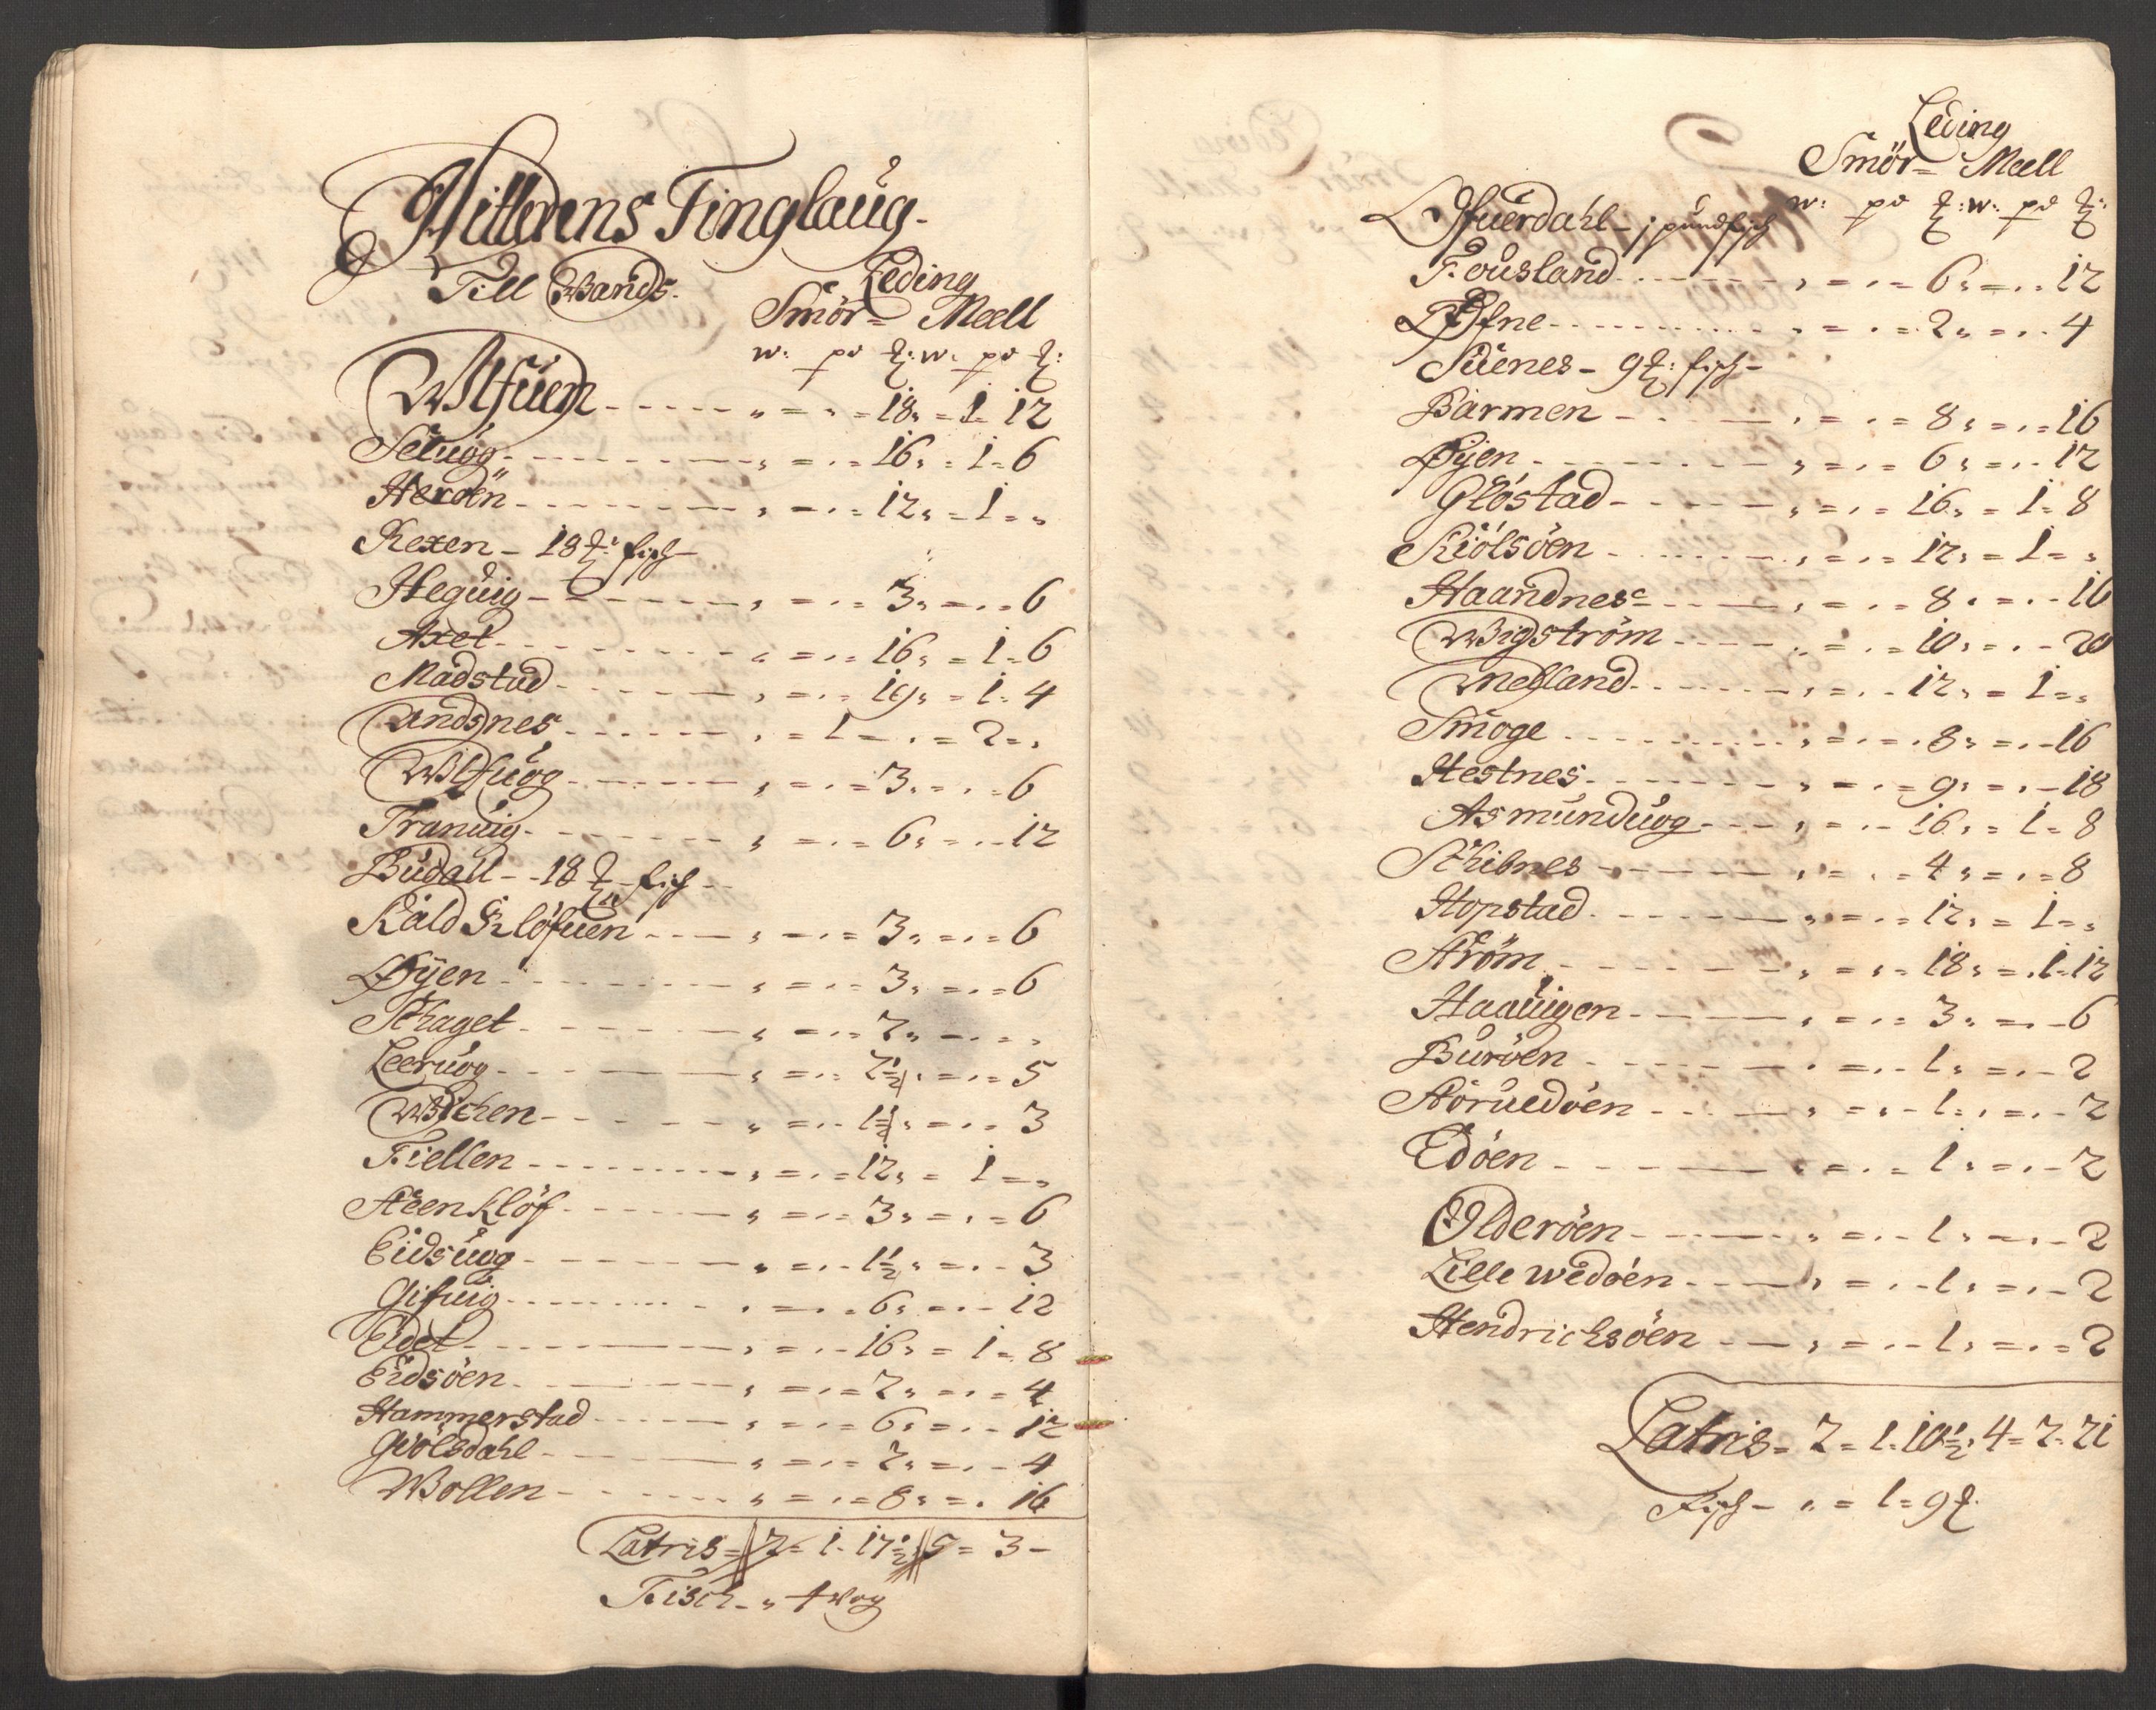 Hitterens Tinglaug.
Till Wands.
Leding
Smör = Meell
w: pd ℔: w: pd ℔:
Wlfuen - - - - - „ = „ = 18„ = 1 = 12
Setuog - - - - - „ = „ = 16„ = 1 = 6
Heroën - - - - - „ = „ = 12„ = 1 = „
Kexen - 18 ℔: fisch -
Heguig - - - - - „ = „ = 3„ = „ = 6
Axel - - - - - „ = „ = 16„ = 1 = 6
Madstad - - - - - „ = „ = 19„ = 1 = 4
Undsnes - - - - - „ = 1 = „ = 2 = „
Wlfuog - - - - - „ = „ = 3„ = „ = 6
Tranuig - - - - - „ = „ = 6„ = „ = 12
Budall - - 18 ℔ fisch - -
Kald Kløfuen - - - „ = „ = 3„ = „ = 6
Øÿen - - - - - „ = „ = 3„ = „ = 6
Skaget - - - - - „ = „ = 2„ = „ = „
Leeruog - - - - - „ = „ = 2½„ = „ = 5
Wichen - - - - - „ = „ = 1½„ = „ = 3
Fiellen - - - - - „ = „ = 12„ = 1 = „
Steenkløf - - - - - „ = „ = 3„ = „ = 6
Eidsuog - - - - - „ = „ = 1½„ = „ = 3
Gifuig - - - - - „ = „ = 6„ = „ = 12
Eidet - - - - - „ = „ = 16„ = 1 = 8
Eidsöen - - - - - „ = „ = 2„ = „ = 4
Hammerstad - - - - - „ = „ = 6„ = „ = 12
Giölsdahl - - - - - „ = „ = 2„ = „ = 4
Wollen - - - - - „ = „ = 8„ = „ 16
Latris = 2 = 1 = 17½ 9 = 3 -
Fisch - „ 1 wog
Leding
Smör = Meell
w: pd ℔: w: pd ℔:
Øfuerdahl - j pundfisch
Fousland - - - - - „ = „ = 6„ = „ = 12
Øfne - - - - - „ = „ = 2„ = „ = 4
Suenes - 9 ℔: fisch -
Barmen - - - - - „ = „ = 8„ = „ = 16
Øÿen - - - - - „ = „ = 6„ = „ = 12
Gløstad - - - - - „ = „ = 16„ = 1 = 8
Kiölsöen - - - - - „ = „ = 12„ = 1 = „
Haandnes - - - - - „ = „ = 8„ = „ = 16
Wigström - - - - - „ = „ = 10„ = „ = 20
Melland - - - - - „ = „ = 12„ = 1 = „
Smoge - - - - - „ = „ = 8„ = „ = 16
Hestnes - - - - - „ = „ = 9„ = „ = 18
Asmunduog - - - „ = „ = 16„ = 1 = 8
Skibnes - - - - - „ = „ = 4„ = „ = 8
Hopstad - - - - - „ = „ = 12„ = 1 = „
Strøm - - - - - „ = „ = 18„ = 1 = 12
Haauigen - - - - - „ = „ = 3„ = „ = 6
Buröen - - - - - „ = „ = 1„ = „ = 2
Storuedöen - - - - „ = „ = 1„ = „ = 2
Edöen - - - - - „ = „ = 1„ = „ = 2
Olderöen - - - - - „ = „ = 1„ = „ = 2
Lille wedöen - - - - „ = „ = 1„ = „ = 2
Hendrichsöen - - - „ = „ = 1„ = „ = 2
Latris = 2 = 1 = 10½„ 4 = 2 = 21
Fisch - „ = 1 = 9 ℔